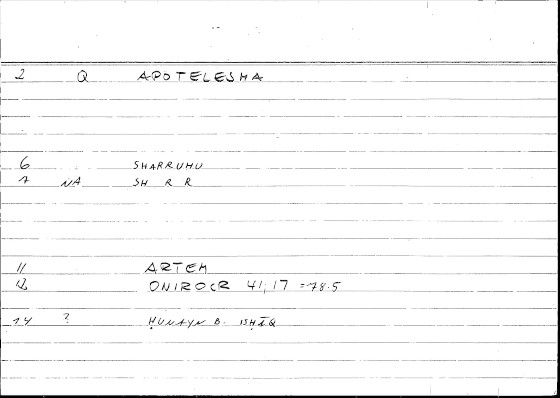 2 Q APOTELESMA
6 SHARRUHU
7 NA SH R R
11 ARTEM
12 ONIROCR 41,17 = 78.5
14 ? ḤUNAYN B. ISḤĀQ